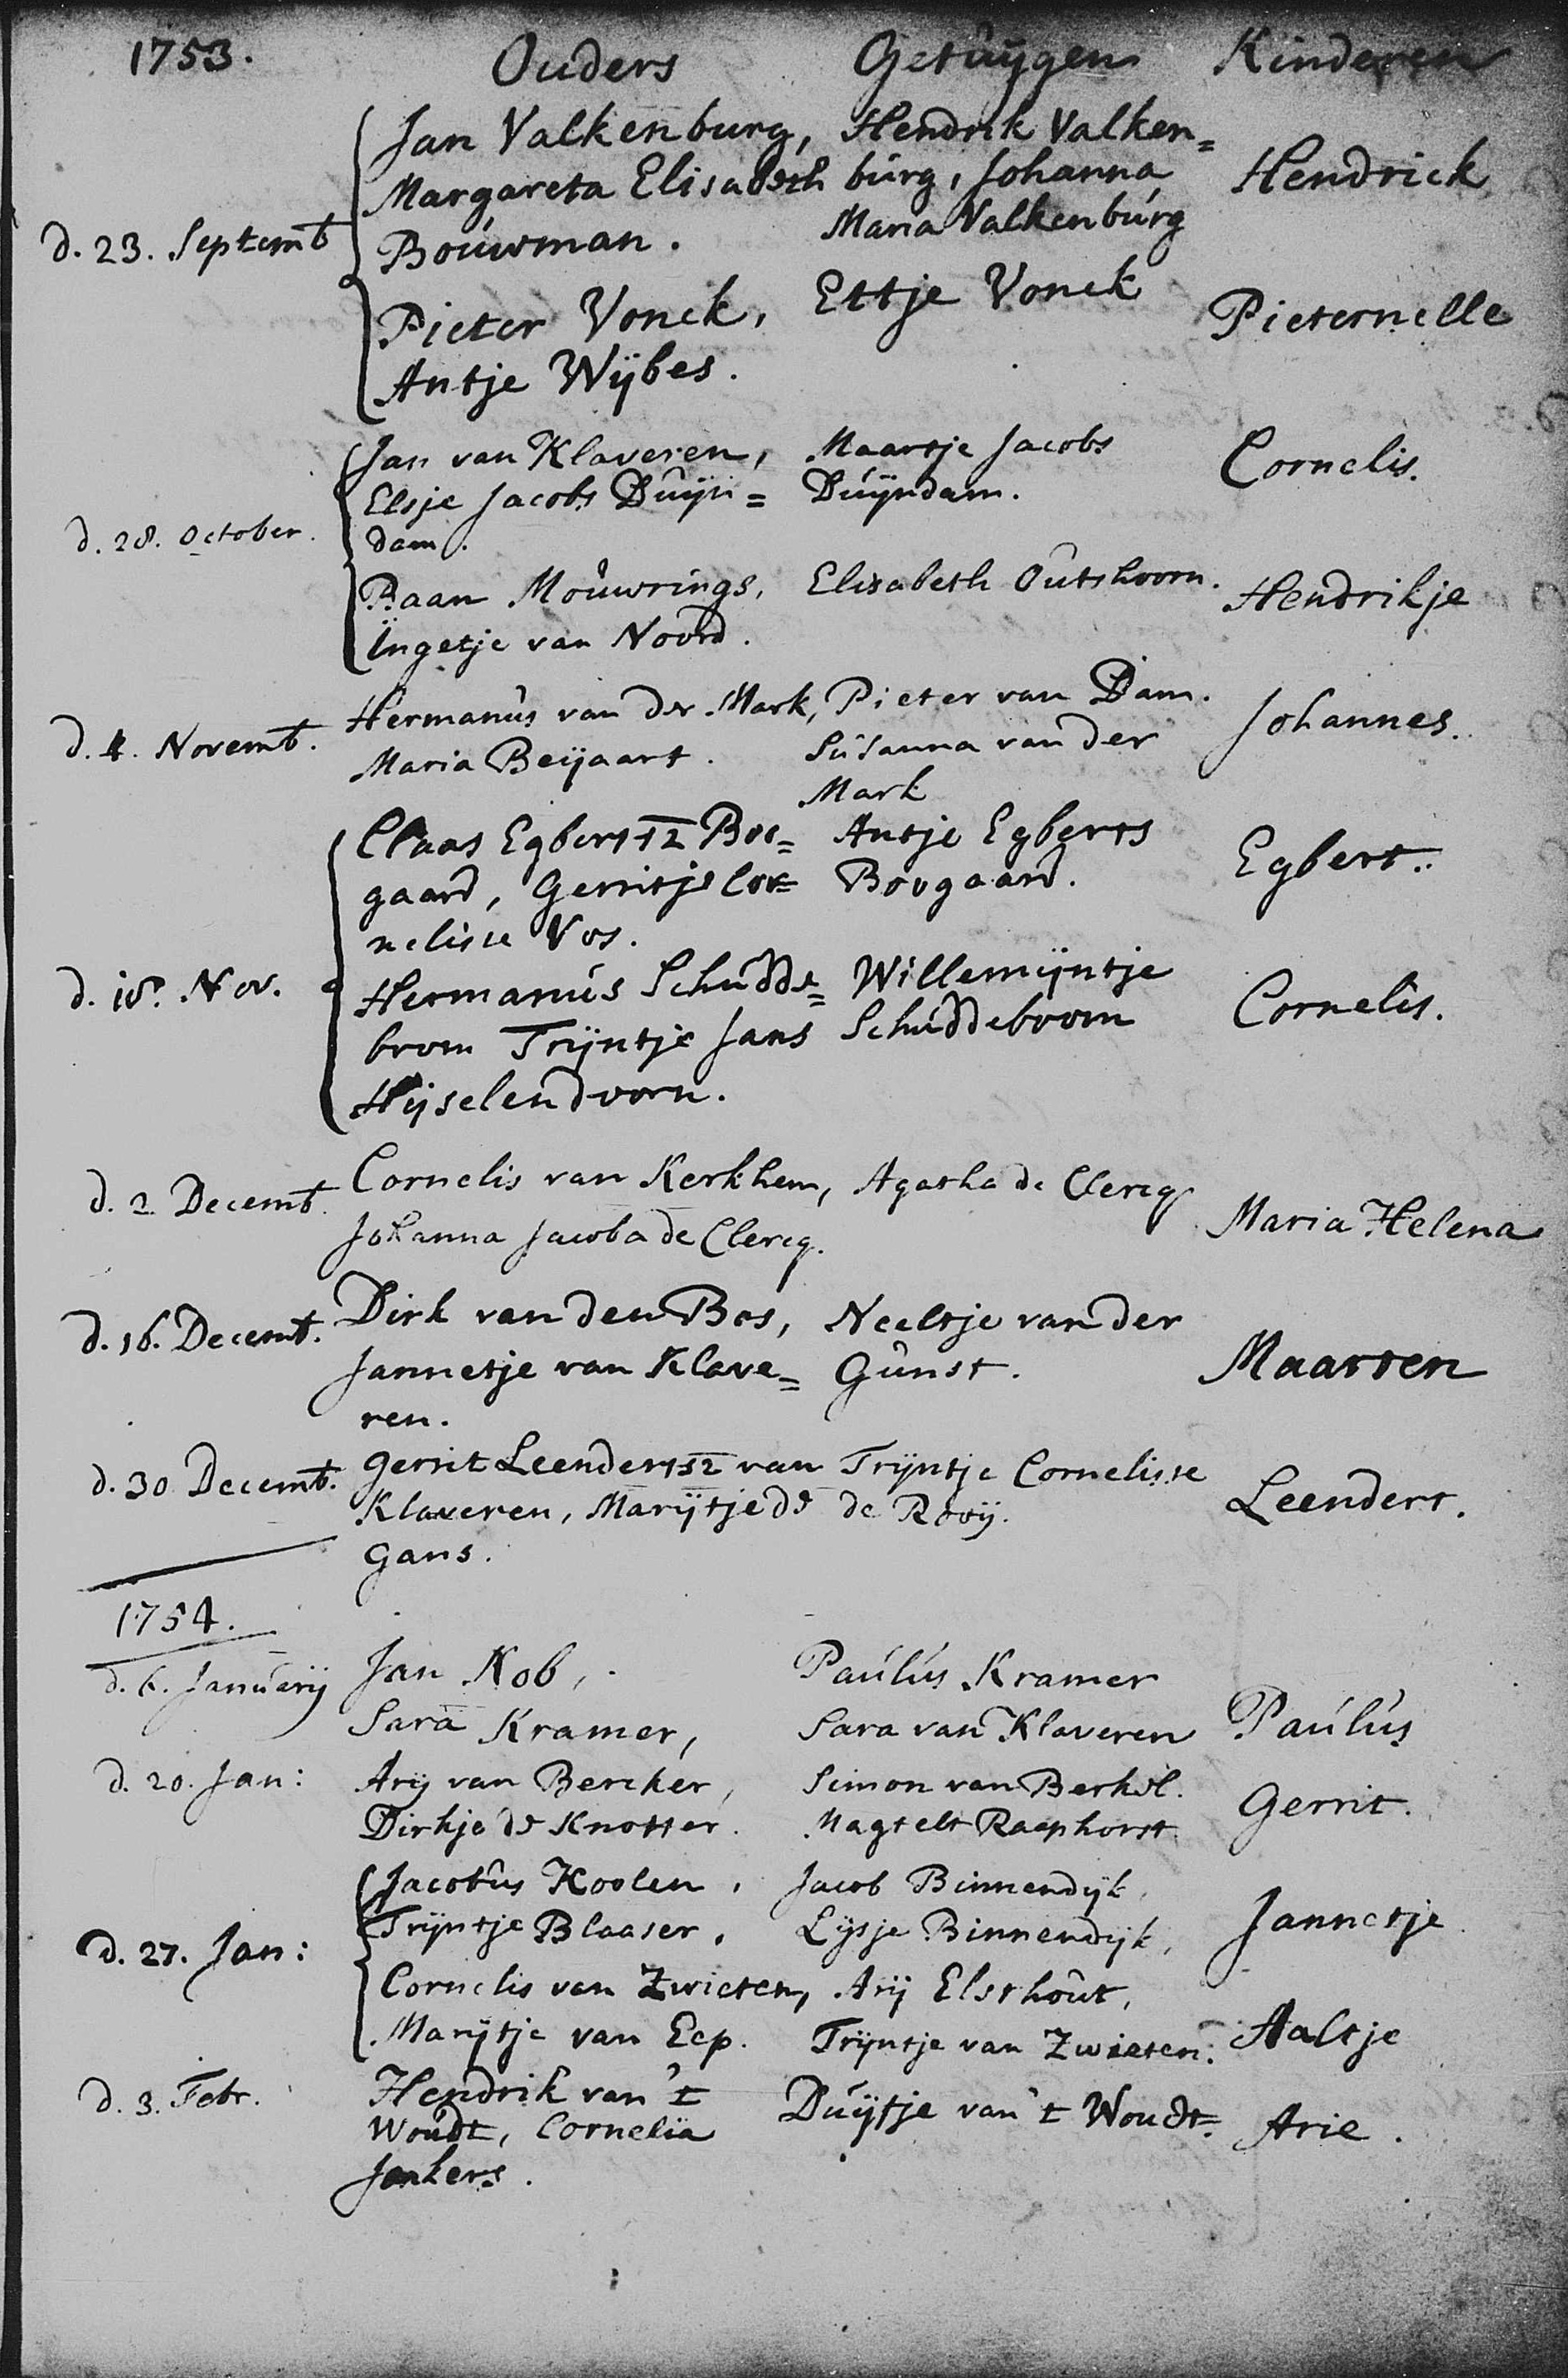 1753. Ouders Getuÿgen Kinderen
Jan Valkenburg, Hendrik Valken=
Margareta Elisabeth burg, Johanna Hendrick
d. 23. Septemb Bouwman. Maria Valkenburg
Pieter Vonck, Ettje Vonck Pieternelle
Antje Wÿbes.
Jan van Klaveren, Maartje Jacobs Cornelis.
Elsje Jacobs Duÿn= Duÿndam.
d. 28. October. dam.
Baan Mouwrings, Elisabeth Outshoorn. Hendrikje
Ingetje van Noord.
d. 4. Novemb. Hermanus van der Mark, Pieter van Dam. Johannes.
Maria Beÿaart. Susanna van der
Mark
Claas Egbertsz Boo= Antje Egberts Egbert.
gaard, Gerritje Cor= Boogaard.
nelisse Vos.
d. 18. Nov. Hermanus Schudde= Willemÿntje Cornelis.
boom Trÿntje Jans Schuddeboom
Hÿselendoorn.
d. 2 Decemb. Cornelis van Kerkhem, Agatha de Clercq Maria Helena
Johanna Jacoba de Clercq.
d. 16. Decemb. Dirk van den Bos, Neeltje van der Maarten
Jannetje van Klave= Gunst.
ren.
d. 30 Decemb. Gerrit Leendertsz van Trÿntje Cornelisse Leendert.
Klaveren, Marÿtje de de Rooÿ.
Gans.
1754.
d. 6. Januarÿ Jan Kob, Paulus Kramer Paulus
Sara Kramer, Sara van Klaveren
d. 20. Jan: Arÿ van Bercker, Simon van Berkel. Gerrit.
Dirkje de Knotter. Magtelt Raaphorst
Jacobus Koolen, Jacob Binnendÿk, Jannetje
d. 27. Jan: Trÿntje Blaaser, Lÿsje Binnendÿk,
Cornelis van Zwieten, Arÿ Elsthout, Aaltje
Marÿtje van Eep. Trÿntje van Zwieten.
d. 3. Febr. Hendrik van 't Duÿtje van 't Woudt. Arie.
Woudt, Cornelia
Jonkers.